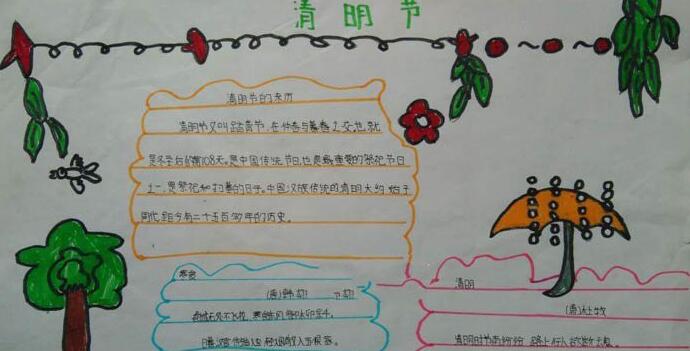 清明节
清明节的来历
清明节又叫踏青节,在仲春与暮春之交,也就
是冬至后的第108天。是中国传统节日,也是最重要的祭祀节日
之一,是祭祀和扫墓的日子。中国汉族传统的清明大约始于
周代,距今有二千五百多年的历史。
寒食
(唐)韩翃
春城无处不飞花,寒食东风御柳斜。
日暮汉宫传蜡烛,轻烟散入五侯家。
清明
(唐)杜牧
清明时节雨纷纷,路上行人欲断魂。